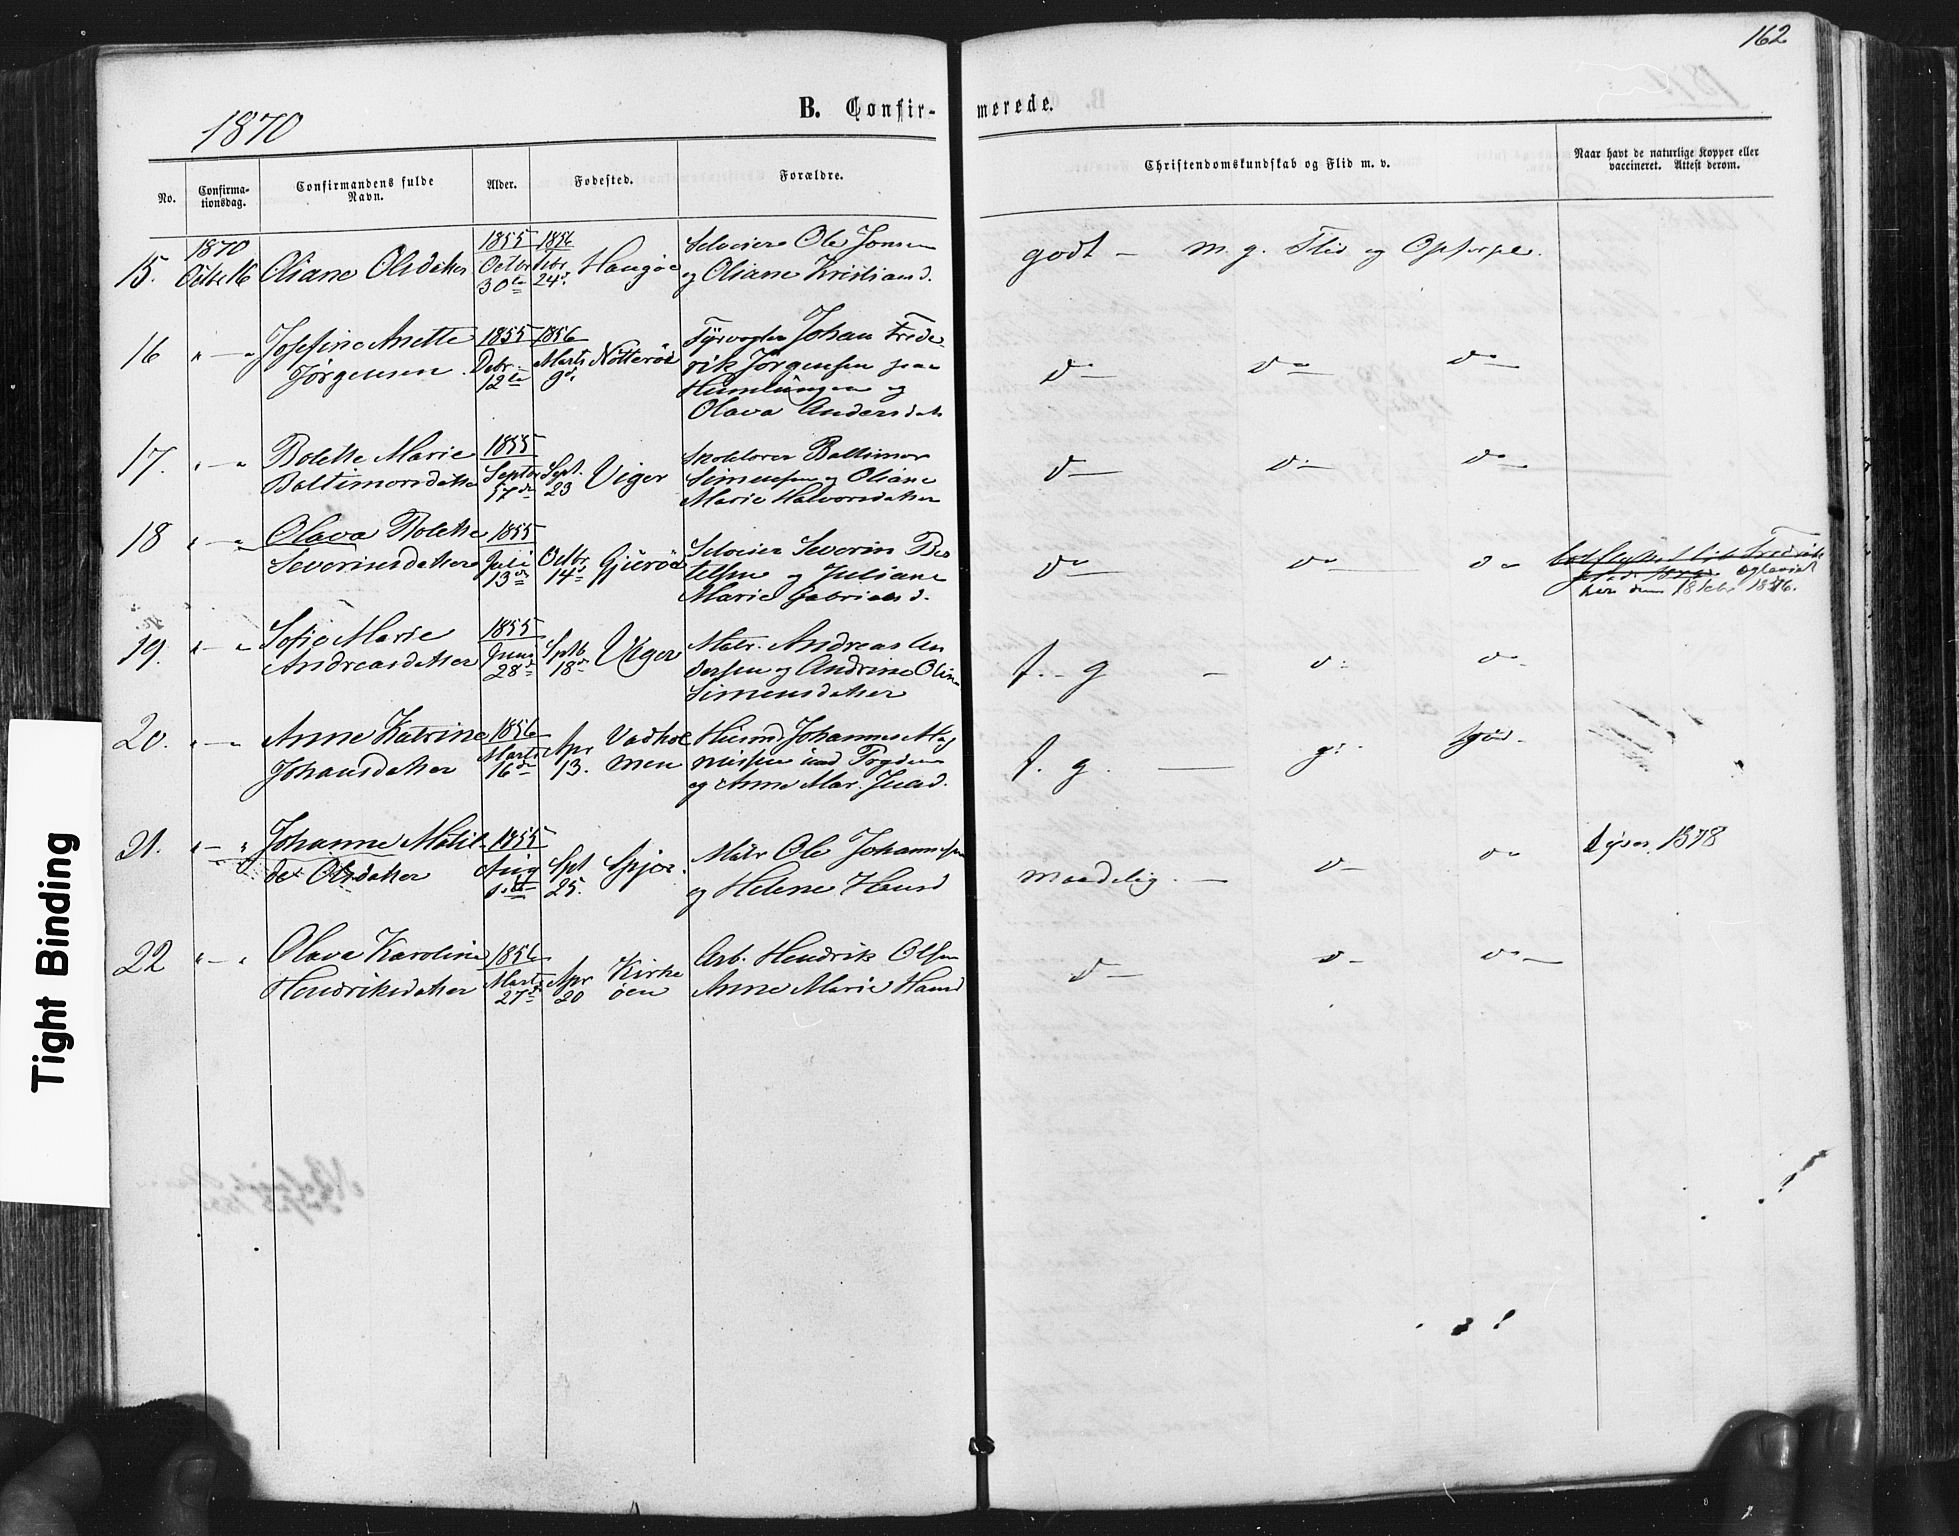 162
1870
B. Confir-
merede.
No.
Confirma-
tionsdag.
Confirmandens fulde
Navn.
Alder.
Fødested.
Forældre.
Christendomskundskab og Flid m. v.
Naar havt de naturlige Kopper eller
vaccineret. Attest derom.
15.
1870
Octbr 16
Oliane Olsdatter
1855
Octbr
30te
1856
Febr
24d.
Haugøe
Selveier Ole Jonsen
og Oliane Kristiansd.
godt — m. g. Flid og Opførsel.
16
" — "
Josefine Anette
Jörgensen
1855
Debr.
12te
1856
Marts
9d.
Nötterøe
Fyrvogter Johan Frede-
rik Jörgensen paa
Humlungen og
Olava Andersdat
do do do
17.
" — "
Bolette Marie
Baltimorsdatter
1855
Septbr
17de
Sept.
23
Viger
Skolelærer Baltimor
Simensen og Oliane
Marie Halvorsdatter
do do do
18
" — "
Olava Bolette
Severinsdatter
1855
Juli
13de
Octbr
14d
Gjurøe
Selveier Severin Ber-
telsen og Juliane
Marie Gabrielsd.
do do do
Fredrik
her den 18 Febr 1876.
19.
" — "
Sofie Marie
Andreasdatter
1855
Juni
28de
Septb
18de
Viger
Matr. Andreas An
dersen og Andrine Olin
Simensdatter
t. g — do do
20.
" — "
Anne Katrine
Johansdatter
1856
Marts
16de
Apr
13.
Vadhol
men
Husmd Johannes Mag
nussen
og Anne Mar. Isaad.
t. g. — g. god.
21.
" — "
Johanne Matil
de Olsdatter
1855
Aug
1ste
Spt
25.
Spjær.
Matr Ole Johannesen
og Helene Hansd
maadelig. — do do
Lyser. 1878
22
" — "
Olava Karoline
Hendriksdatter
1856
Marts
27de
Apr
20
Kirke
øen
Arb. Hendrik Olsen
Anne Marie Hansd
do do do
Tight Binding